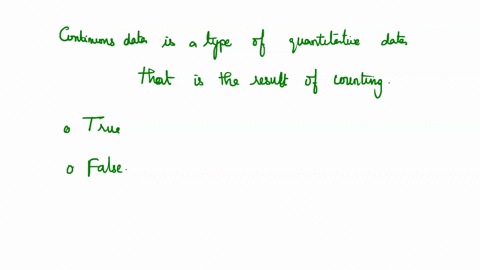 Continuous data is a type of quantitative data
that is the result of counting.
o True
o False.